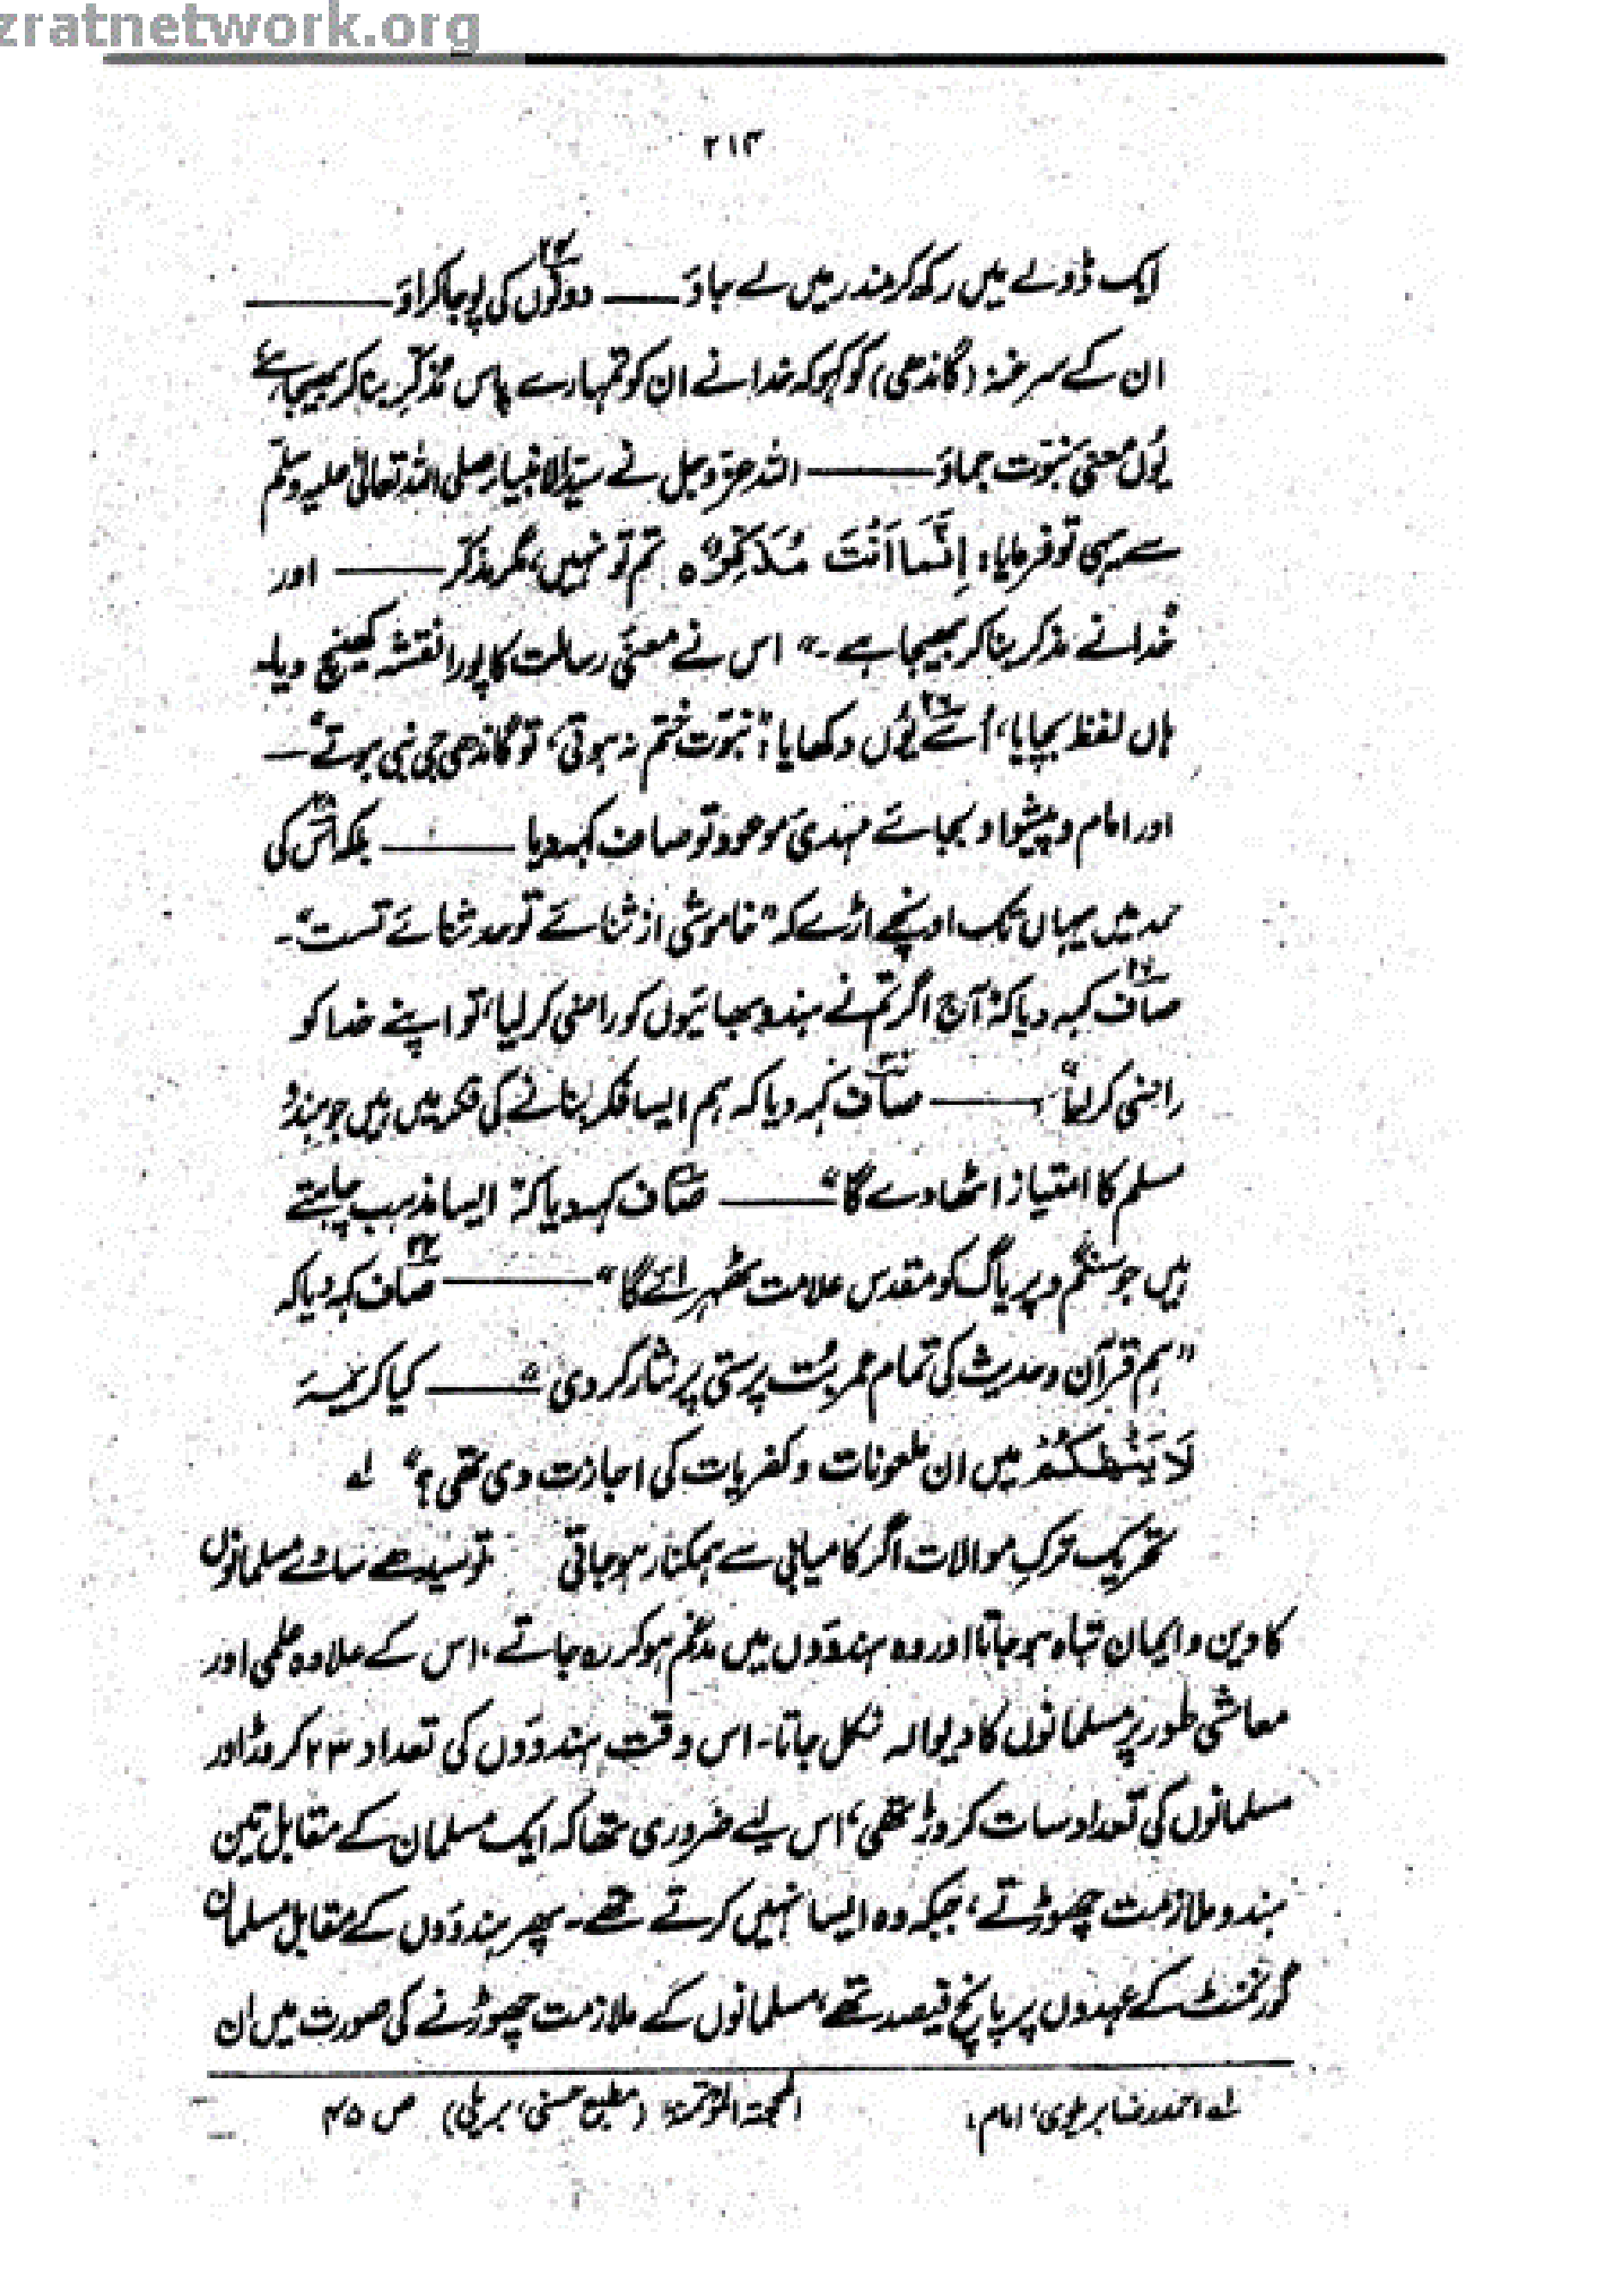 zratnetwork.org
۲۱۳
ایک ڈولے میں رکھ کر مندر میں لے جاؤ —— دونوں کی پوجا کراؤ ——
ان کے سرغنہ (گاندھی) کو کہو کہ خدا نے ان کو تمہارے پاس مذکر بنا کر بھیجا ہے
یوں معنی نبوت جماؤ —— اللہ عزوجل نے سید الانبیاء صلی اللہ تعالیٰ علیہ وسلم
سے یہی تو فرمایا: اِنَّمَا اَنْتَ مُذَکِّرٌ ہ تم تو نہیں، مگر مذکر —— اور
خدا نے مذکر بنا کر بھیجا ہے۔" اس نے معنی رسالت کا پورا نقشہ کھینچ دیا۔
ہاں لفظ بچایا، اُسے ۲۶ یوں دکھایا: "نبوت ختم نہ ہوتی، تو گاندھی جی نبی ہوتے" —
اور امام و پیشوا و بجائے مہدی موعود تو صاف کہہ دیا —— بلکہ اس کی
حمد میں یہاں تک اونچے اڑے کہ "خاموشی از ثنائے تو حد ثنائے تست"۔
صاف کہہ دیا کہ "آج اگر تم نے ہندو بھائیوں کو راضی کر لیا، تو اپنے خدا کو
راضی کر لیا" —— صاف کہہ دیا کہ ہم ایسا فکر بنانے کی فکر میں ہیں جو ہندو
مسلم کا امتیاز اٹھا دے گا" —— صاف کہہ دیا کہ "ایسا مذہب چاہتے
ہیں جو سنگم و پریاگ کو مقدس علامت ٹھہرائے گا" —— صاف کہہ دیا کہ ۳۲
"ہم قرآن و حدیث کی تمام عمر بُت پرستی پر نثار کر دی" —— کیا کریمہ
لَا یَنْہٰکُمُ میں ان ملعونات و کفریات کی اجازت دی تھی؟" لہ
تحریک ترک موالات اگر کامیابی سے ہمکنار ہو جاتی تو سیدھے سادے مسلمانوں
کا دین و ایمان تباہ ہو جاتا اور وہ ہندوؤں میں مدغم ہو کر رہ جاتے، اس کے علاوہ علمی اور
معاشی طور پر مسلمانوں کا دیوالہ نکل جاتا۔ اس وقت ہندوؤں کی تعداد ۲۳ کروڑ اور
مسلمانوں کی تعداد سات کروڑ تھی، اس لیے ضروری تھا کہ ایک مسلمان کے مقابل تین
ہندو ملازمت چھوڑتے، جبکہ وہ ایسا نہیں کرتے تھے۔ پھر ہندوؤں کے مقابل مسلمان
گورنمنٹ کے عہدوں پر پانچ فیصد تھے، مسلمانوں کے ملازمت چھوڑنے کی صورت میں ان
لہ احمد رضا بریلوی، امام: المحجۃ المؤتمنۃ (مطبع حسنی، بریلی) ص ۴۵